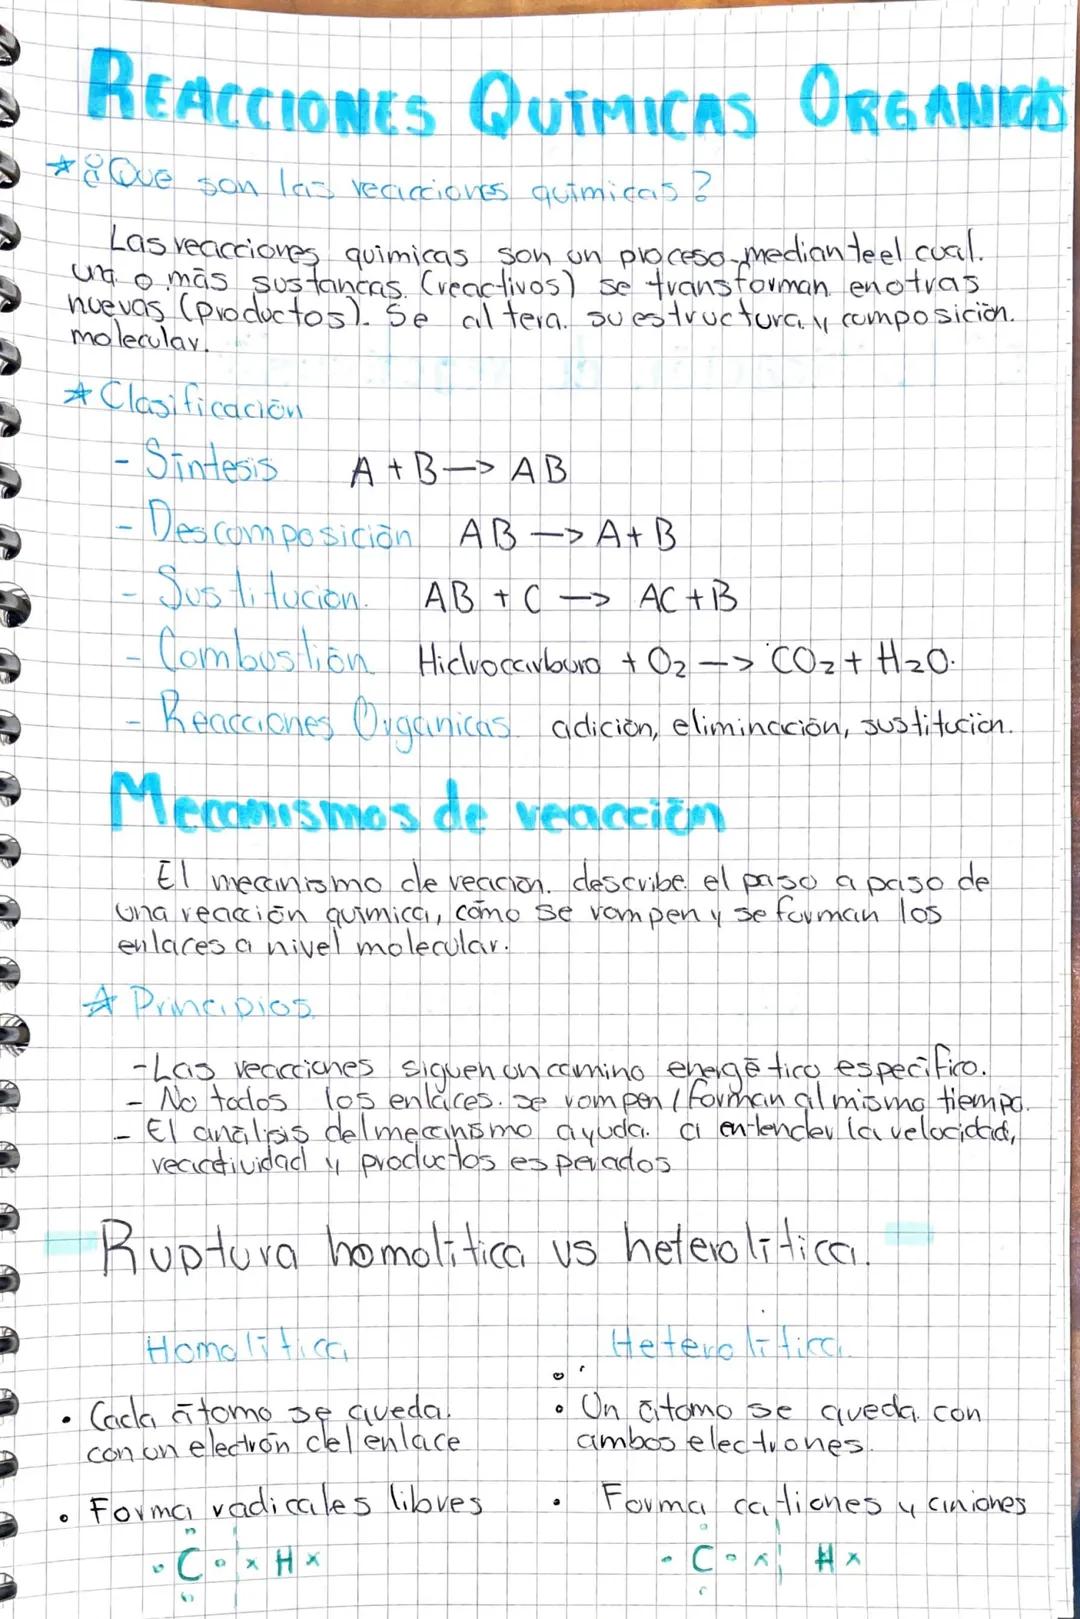 REACCIONES QUÍMICAS ORGANICAS
* ¿Que son las reacciones químicas?
Las reacciones químicas son un proceso mediante el cual.
una o más sustancas. (reactivos) se transforman en otras
nuevas (productos). Se altera. su estructura y composición.
molecular.
* Clasificación
- Síntesis A + B -> AB
- Descomposición AB -> A + B
- Sustitución. AB + C -> AC + B
- Combustión Hidrocarburo + O2 -> CO2 + H2O.
- Reacciones Orgánicas. adición, eliminación, sustitución.
Mecanismos de reacción
El mecanismo de reación. describe el paso a paso de
una reacción química, cómo se rompen y se forman los
enlaces a nivel molecular.
* Principios.
- Las reacciones siguen un camino energético específico.
- No todos los enlaces. se rompen / forman al mismo tiempo.
- El análisis del mecanismo ayuda. a entender la velocidad,
reactividad y productos esperados
Ruptura homolítica vs heterolítica.
Homolítica
Heterolítica.
• Cada átomo se queda.
con un electrón del enlace
• Un átomo se queda con
ambos electrones.
• Forma radicales libres
• Forma cationes y aniones
C x H x
C x H x